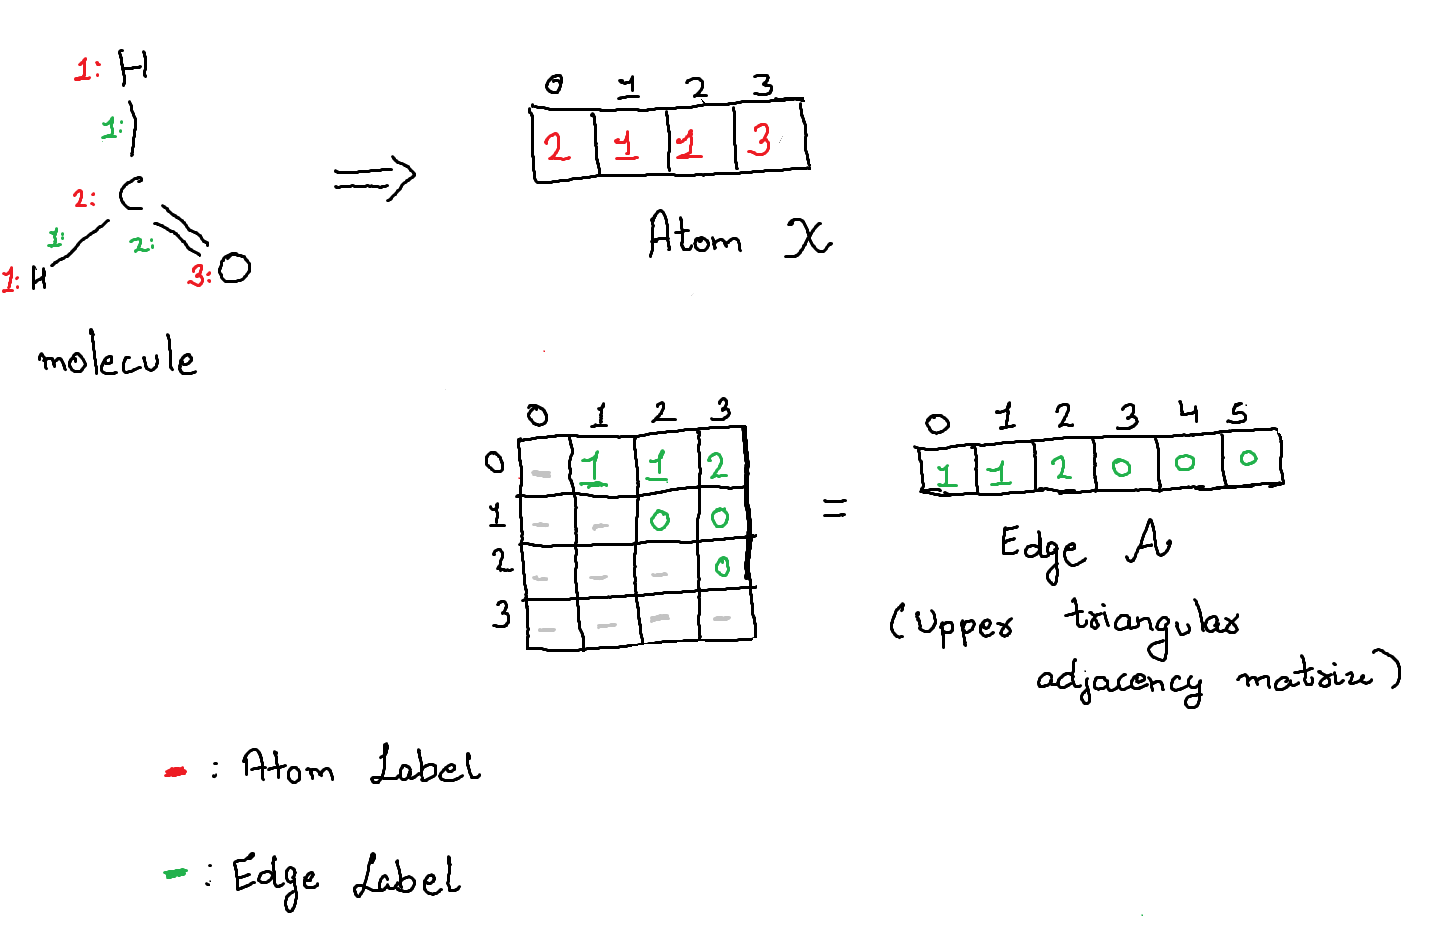 1: H
1:
2: C
1:
2:
1: H
3: O
molecule
0 1 2 3
2 1 1 3
Atom X
0 1 2 3
0 - 1 1 2
1 - - 0 0
2 - - - 0
3 - - - -
=
0 1 2 3 4 5
1 1 2 0 0 0
Edge A
(Upper triangular
adjacency matrix)
- : Atom Label
- : Edge Label